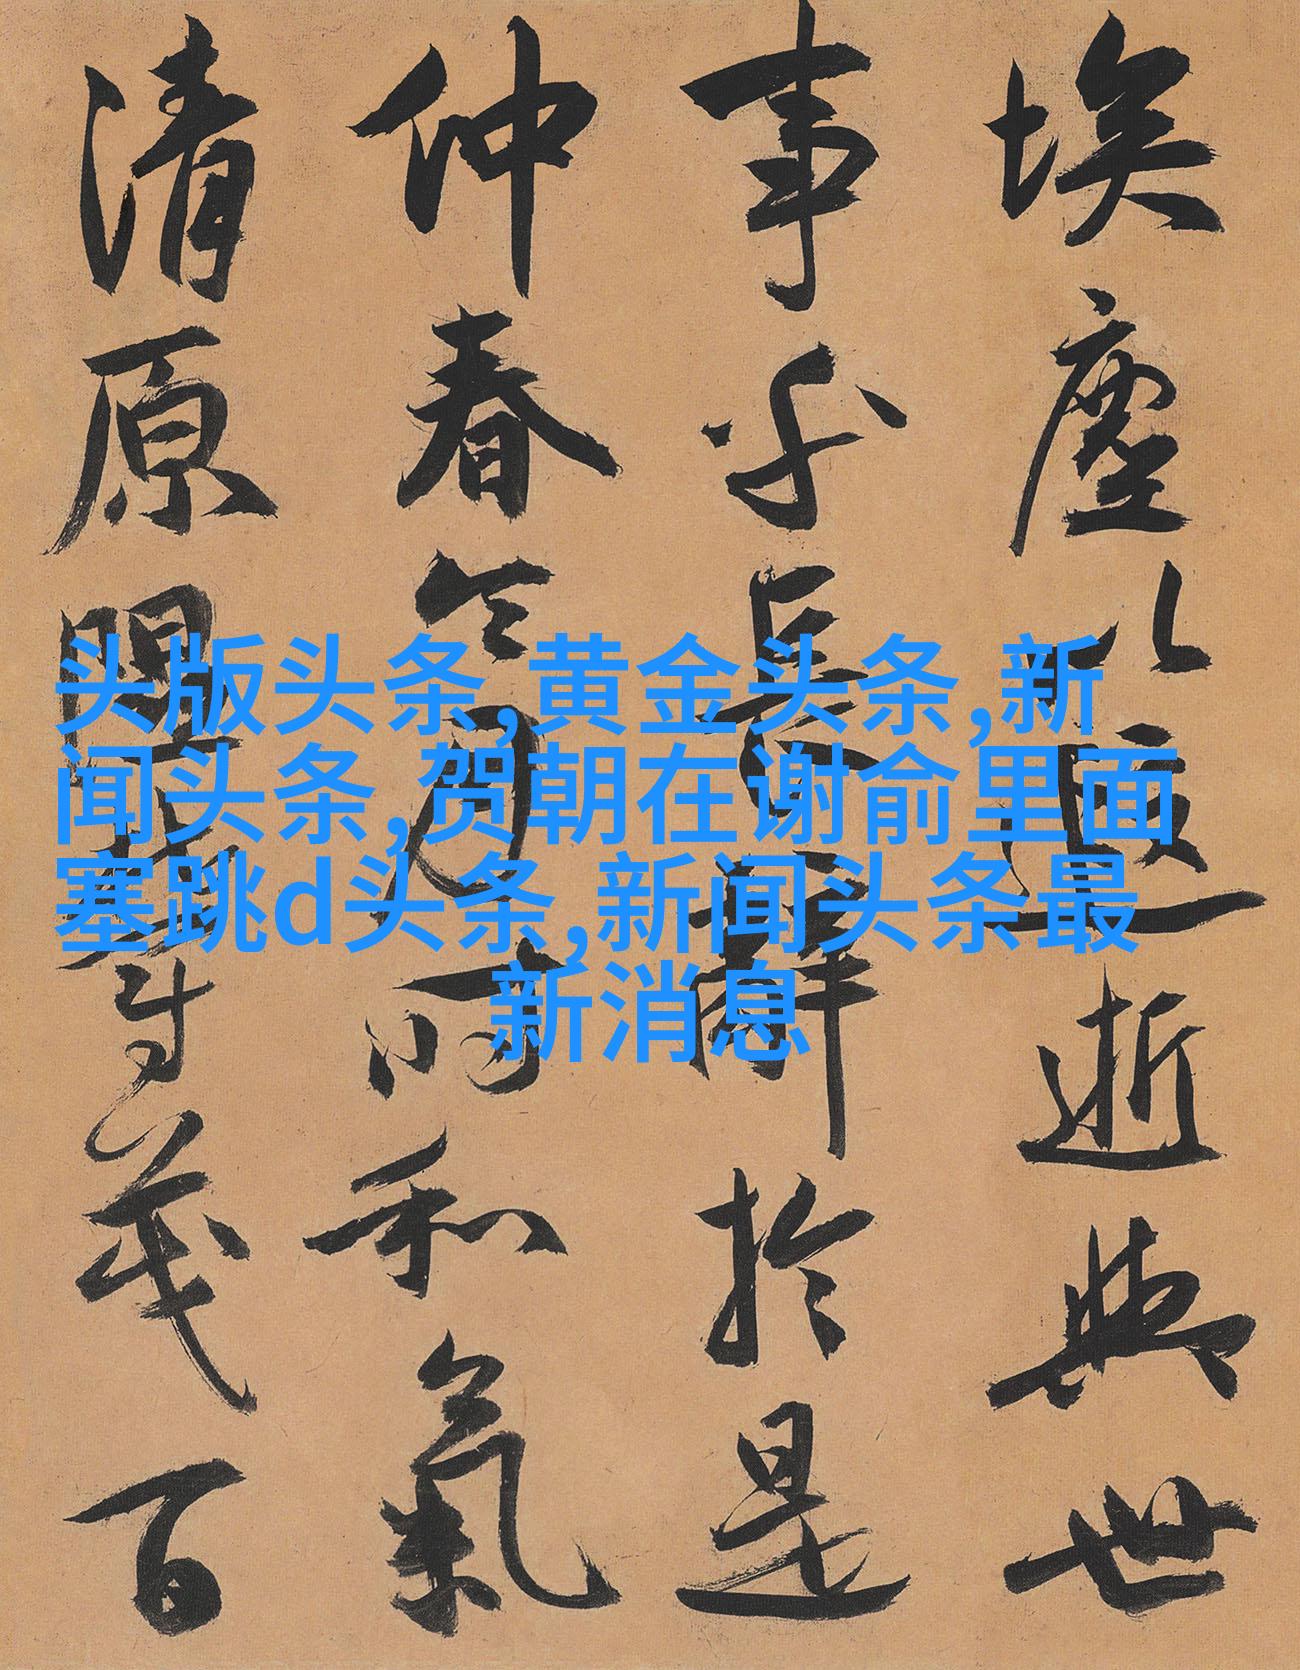 埃塵以遐逝與世
事乎長辭於是
仲春令月時和氣
清原隰鬱茂百
头版头条,黄金头条,新
闻头条,贺朝在谢俞里面
塞跳d头条,新闻头条最
新消息